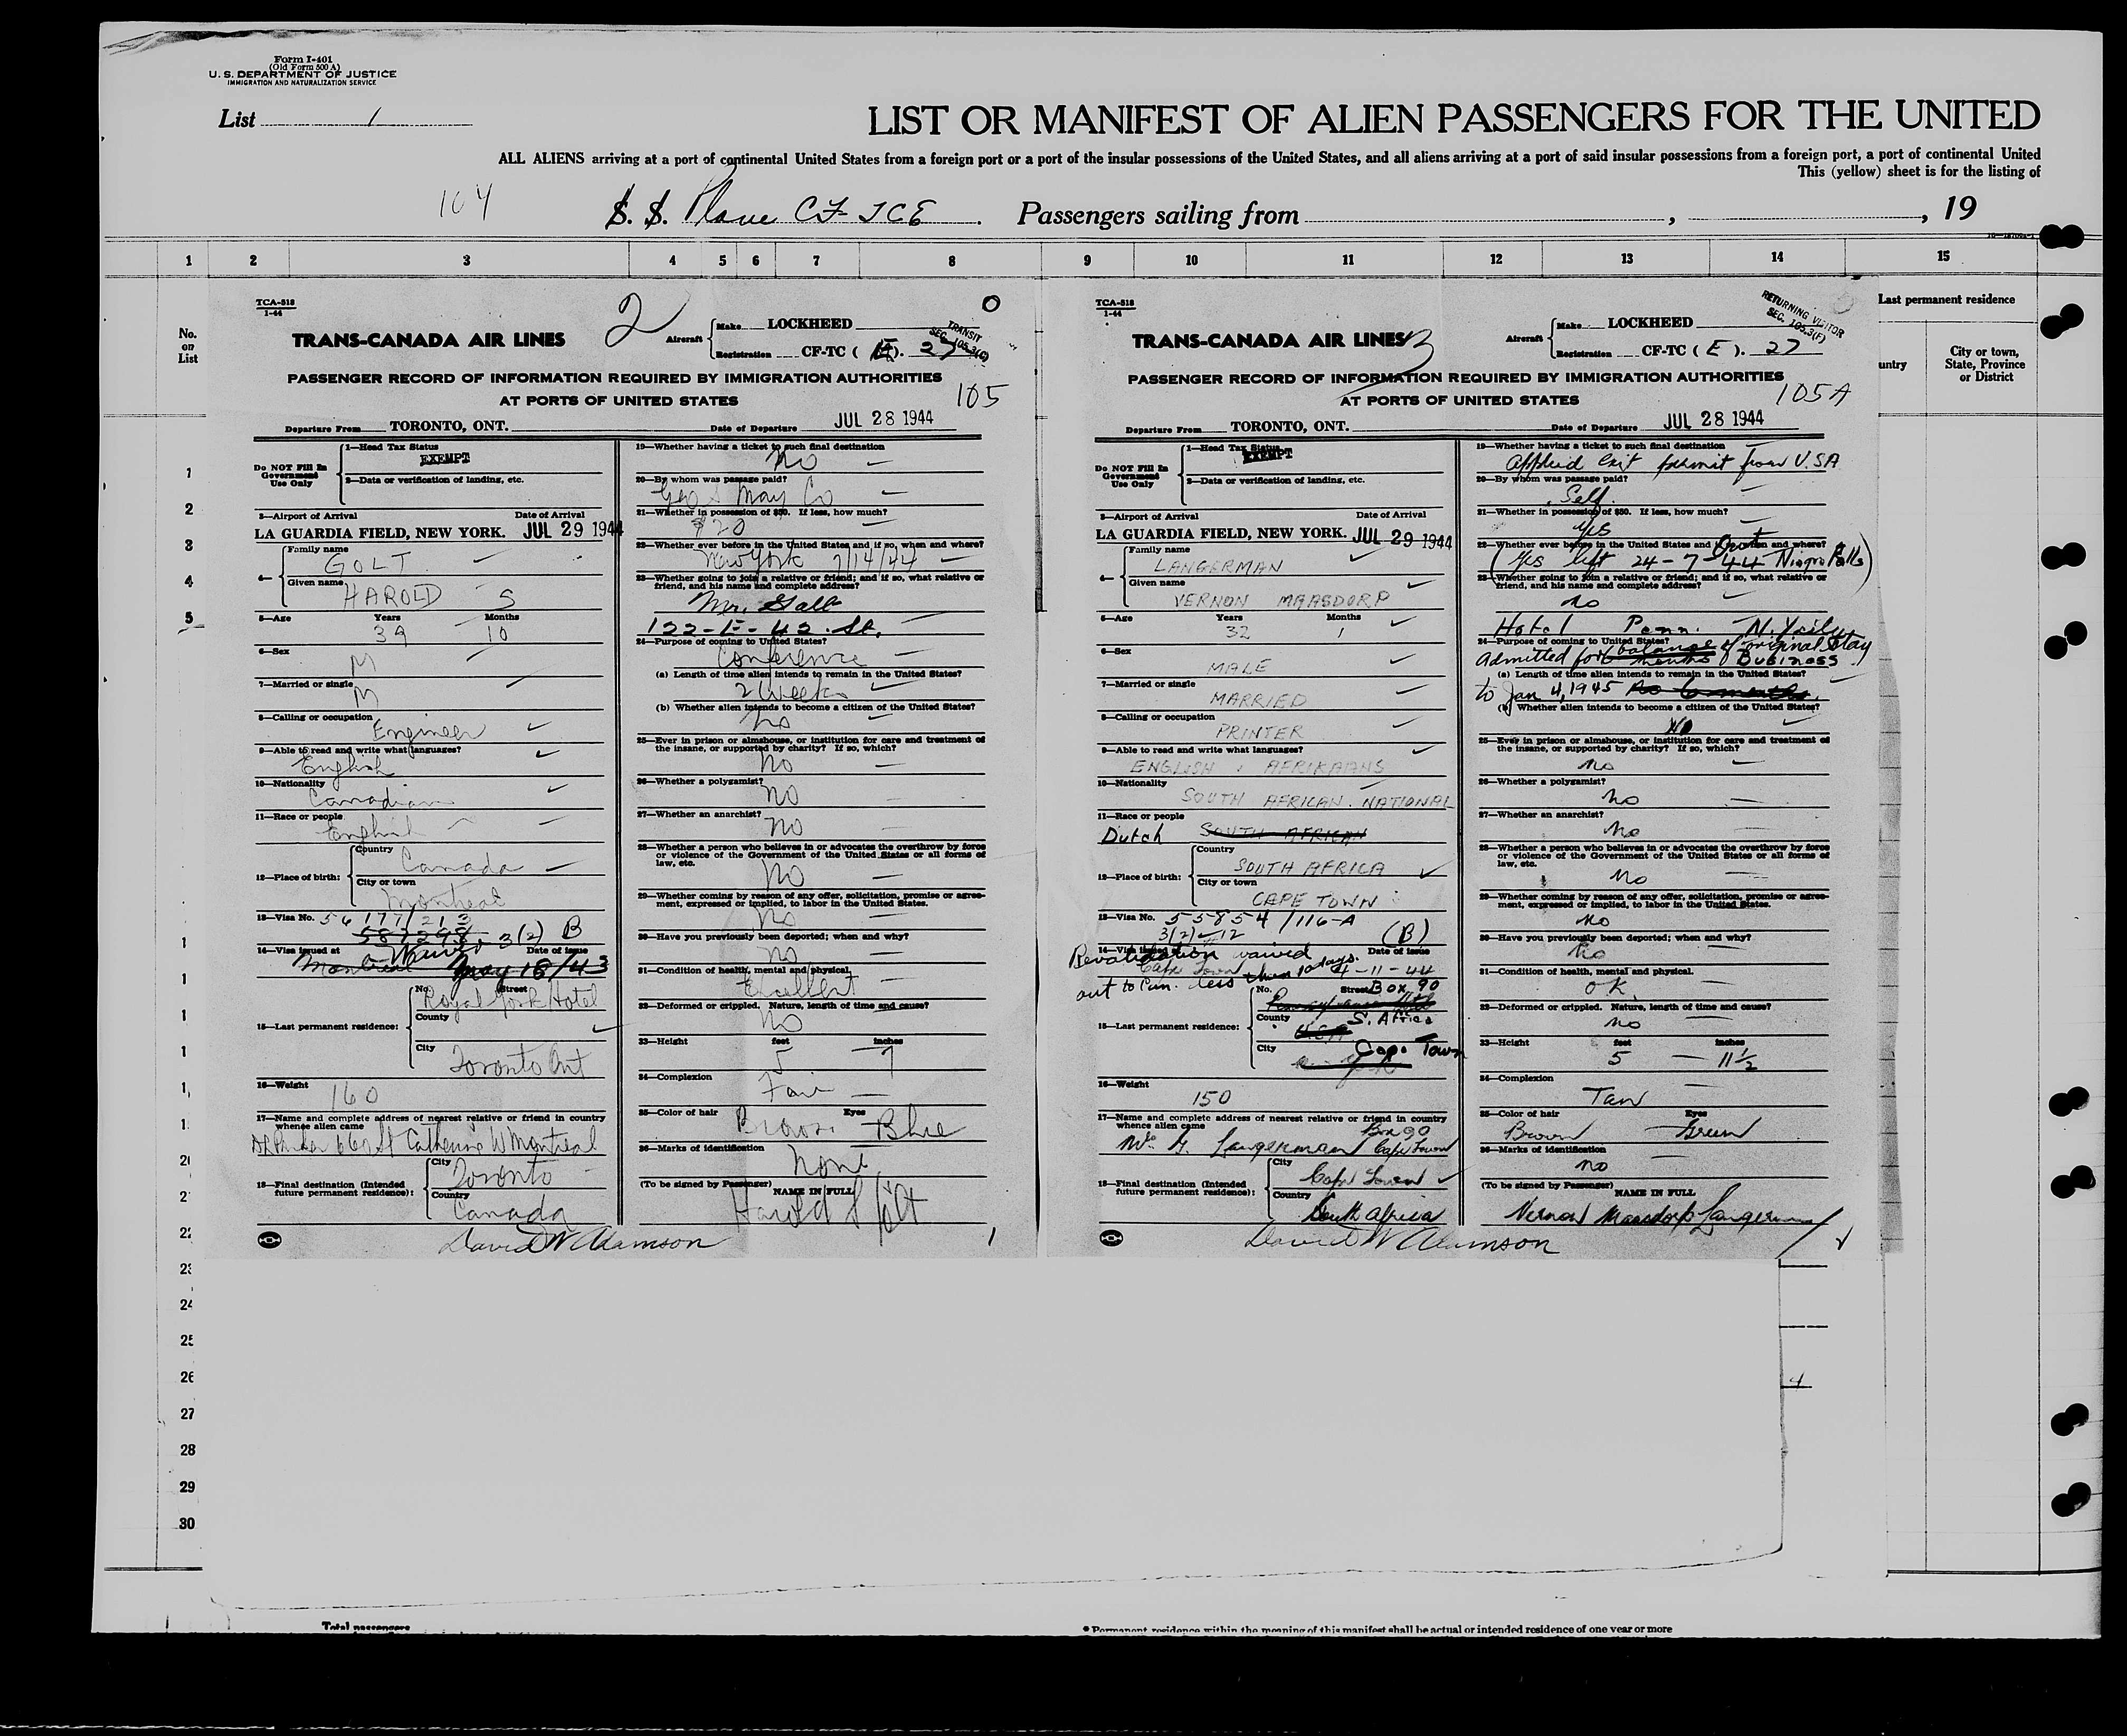 Form I-401
(Old Form 500 A)
U. S. DEPARTMENT OF JUSTICE
IMMIGRATION AND NATURALIZATION SERVICE
List 1
LIST OR MANIFEST OF ALIEN PASSENGERS FOR THE UNITED
ALL ALIENS arriving at a port of continental United States from a foreign port or a port of the insular possessions of the United States, and all aliens arriving at a port of said insular possessions from a foreign port, a port of continental United
This (yellow) sheet is for the listing of
104 S. S. Plane CF-TCE Passengers sailing from , , 19
1 2 3 4 5 6 7 8 9 10 11 12 13 14 15
No.
on
List
TCA-518
1-44
2
TRANS-CANADA AIR LINES
Aircraft
Make LOCKHEED
Registration CF-TC ( E ). 27
TRANSIT
SEC. 105.3(C)
PASSENGER RECORD OF INFORMATION REQUIRED BY IMMIGRATION AUTHORITIES
AT PORTS OF UNITED STATES
105
Departure From TORONTO, ONT. Date of Departure JUL 28 1944
Do NOT Fill In
Government
Use Only
1—Head Tax Status
EXEMPT
2—Data or verification of landing, etc.
3—Airport of Arrival Date of Arrival
LA GUARDIA FIELD, NEW YORK. JUL 29 1944
4—
Family name
GOLT
Given name
HAROLD S
5—Age Years Months
39 10
6—Sex
M
7—Married or single
M
8—Calling or occupation
Engineer
9—Able to read and write what languages?
English
10—Nationality
Canadian
11—Race or people
English
12—Place of birth:
Country
Canada
City or town
Montreal
13—Visa No. 56 177/213
587298, 3(2) B
14—Visa issued at Date of issue
Montreal May 18/43
15—Last permanent residence:
No. Street
Royal York Hotel
County
City
Toronto Ont
16—Weight
160
17—Name and complete address of nearest relative or friend in country
whence alien came
660 St Catherine W Montreal
18—Final destination (Intended
future permanent residence):
City
Toronto
Country
Canada
19—Whether having a ticket to such final destination
No
20—By whom was passage paid?
Geo S May Co
21—Whether in possession of $50. If less, how much?
$20
22—Whether ever before in the United States and if so, when and where?
New York 7/14/44
23—Whether going to join a relative or friend; and if so, what relative or
friend, and his name and complete address?
Mr. Galt
122-E-42. St.
24—Purpose of coming to United States?
Conference
(a) Length of time alien intends to remain in the United States?
2 weeks
(b) Whether alien intends to become a citizen of the United States?
no
25—Ever in prison or almshouse, or institution for care and treatment of
the insane, or supported by charity? If so, which?
No
26—Whether a polygamist?
No
27—Whether an anarchist?
No
28—Whether a person who believes in or advocates the overthrow by force
or violence of the Government of the United States or all forms of
law, etc.
No
29—Whether coming by reason of any offer, solicitation, promise or agree-
ment, expressed or implied, to labor in the United States.
No
30—Have you previously been deported; when and why?
No
31—Condition of health, mental and physical.
Excellent
32—Deformed or crippled. Nature, length of time and cause?
No
33—Height feet inches
5 7
34—Complexion
Fair
35—Color of hair Eyes
Brown Blue
36—Marks of identification
None
(To be signed by Passenger) NAME IN FULL
Harold S Golt
David W Adamson
TCA-518
1-44
3
TRANS-CANADA AIR LINES
Aircraft
Make LOCKHEED
Registration CF-TC ( E ). 27
RETURNING VISITOR
SEC. 105.3(F)
PASSENGER RECORD OF INFORMATION REQUIRED BY IMMIGRATION AUTHORITIES
AT PORTS OF UNITED STATES
105A
Departure From TORONTO, ONT. Date of Departure JUL 28 1944
Do NOT Fill In
Government
Use Only
1—Head Tax Status
EXEMPT
2—Data or verification of landing, etc.
3—Airport of Arrival Date of Arrival
LA GUARDIA FIELD, NEW YORK. JUL 29 1944
4—
Family name
LANGERMAN
Given name
VERNON MAASDORP
5—Age Years Months
32 1
6—Sex
MALE
7—Married or single
MARRIED
8—Calling or occupation
PRINTER
9—Able to read and write what languages?
ENGLISH , AFRIKAANS
10—Nationality
SOUTH AFRICAN. NATIONAL
11—Race or people
Dutch SOUTH AFRICAN
12—Place of birth:
Country
SOUTH AFRICA
City or town
CAPE TOWN
13—Visa No. 55854/116-A
3(2)-12 (B)
14—Visa issued at Date of issue
Revalidation waived
Cape Town 4-11-44
out to Can. less than 10 days.
15—Last permanent residence:
No. Street Box 90
County
S. Africa
City
Cape Town
16—Weight
150
17—Name and complete address of nearest relative or friend in country
whence alien came
Box 90
Langerman Cape Town
18—Final destination (Intended
future permanent residence):
City
Cape Town
Country
South Africa
19—Whether having a ticket to such final destination
Applied Exit permit from U.S.A
20—By whom was passage paid?
Self.
21—Whether in possession of $50. If less, how much?
Yes
22—Whether ever before in the United States and if so, when and where?
(Yes left 24-7-44 Niagra Falls)
23—Whether going to join a relative or friend; and if so, what relative or
friend, and his name and complete address?
no
Hotel Penn. N.Y. city
24—Purpose of coming to United States?
Admitted for balance of original stay
months Business
(a) Length of time alien intends to remain in the United States?
to Jan 4, 1945
(b) Whether alien intends to become a citizen of the United States?
No
25—Ever in prison or almshouse, or institution for care and treatment of
the insane, or supported by charity? If so, which?
No
26—Whether a polygamist?
No
27—Whether an anarchist?
No
28—Whether a person who believes in or advocates the overthrow by force
or violence of the Government of the United States or all forms of
law, etc.
No
29—Whether coming by reason of any offer, solicitation, promise or agree-
ment, expressed or implied, to labor in the United States.
No
30—Have you previously been deported; when and why?
No
31—Condition of health, mental and physical.
OK.
32—Deformed or crippled. Nature, length of time and cause?
No
33—Height feet inches
5 11 1/2
34—Complexion
Tan
35—Color of hair Eyes
Brown Green
36—Marks of identification
no
(To be signed by Passenger) NAME IN FULL
Vernon Maasdorp Langerman
David W Adamson
Last permanent residence
untry
City or town,
State, Province
or District
1
2
3
4
5
23
24
25
26
27
28
29
30
Total passengers
* Permanent residence within the meaning of this manifest shall be actual or intended residence of one year or more